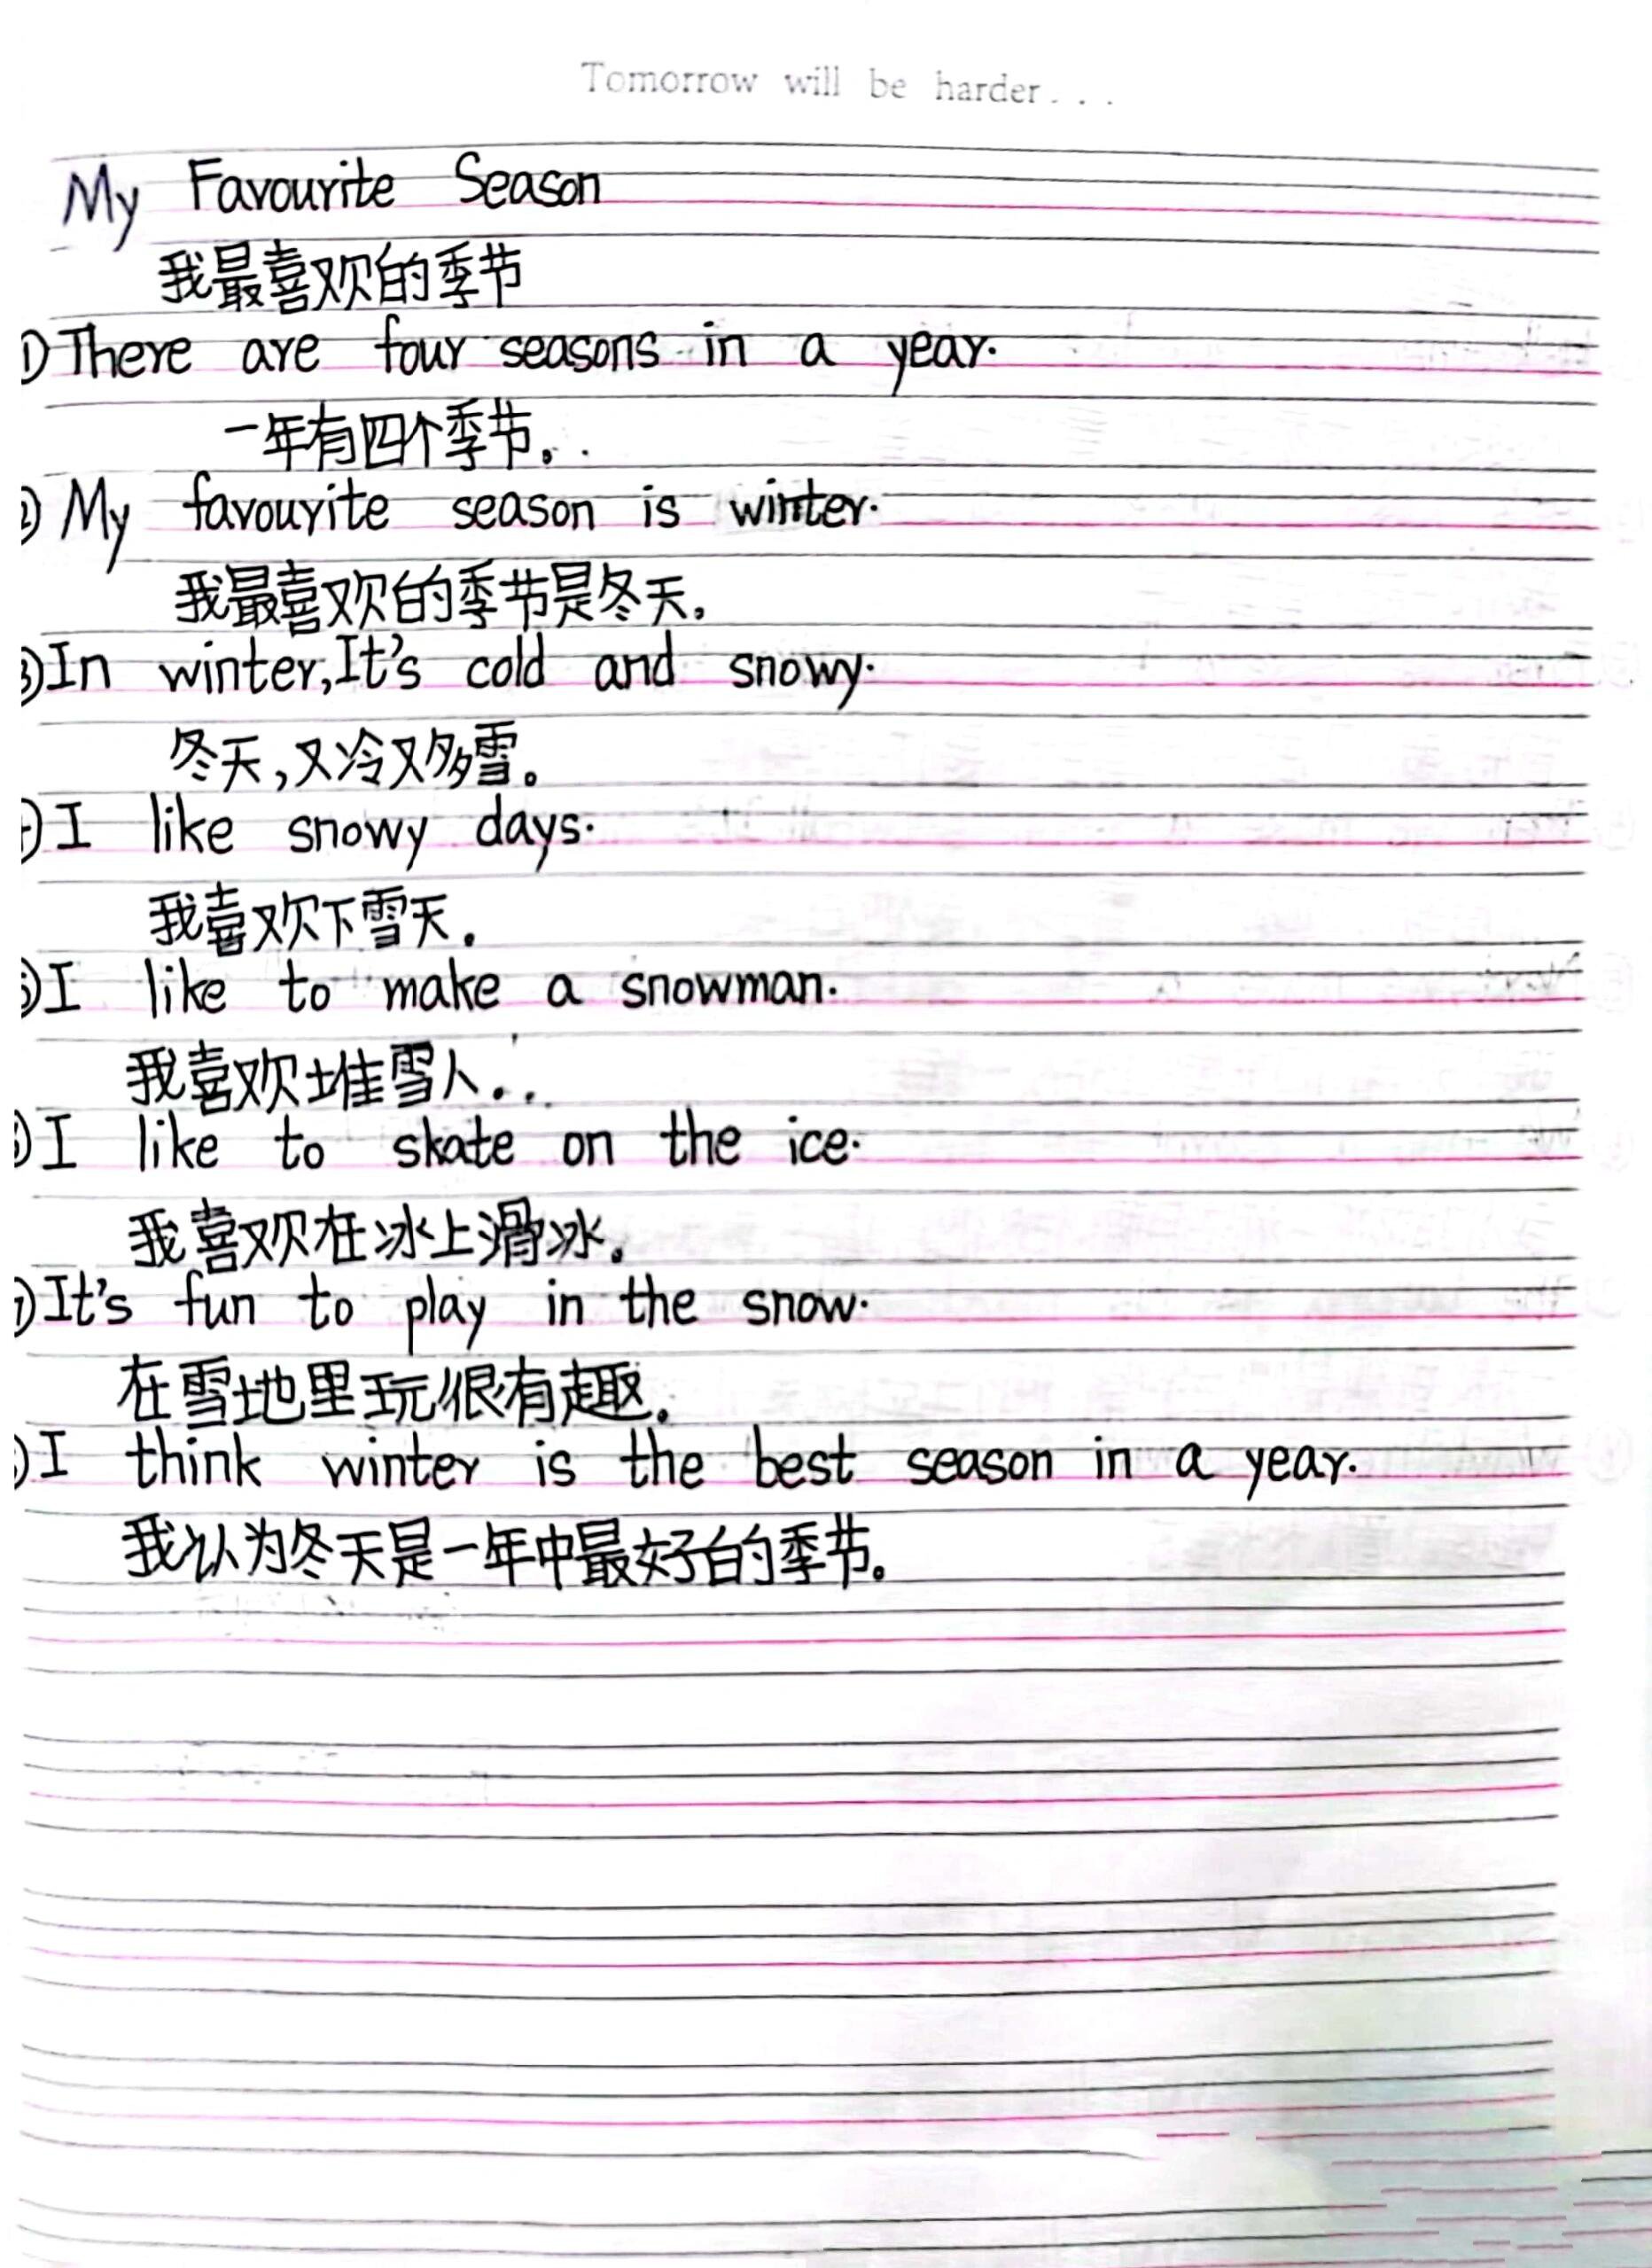 Tomorrow will be harder...
My Favourite Season
我最喜欢的季节
①There are four seasons in a year.
一年有四个季节。
②My favourite season is winter.
我最喜欢的季节是冬天。
③In winter,It's cold and snowy.
冬天,又冷又多雪。
④I like snowy days.
我喜欢下雪天。
⑤I like to make a snowman.
我喜欢堆雪人。
⑥I like to skate on the ice.
我喜欢在冰上滑冰。
⑦It's fun to play in the snow.
在雪地里玩很有趣。
I think winter is the best season in a year.
我认为冬天是一年中最好的季节。